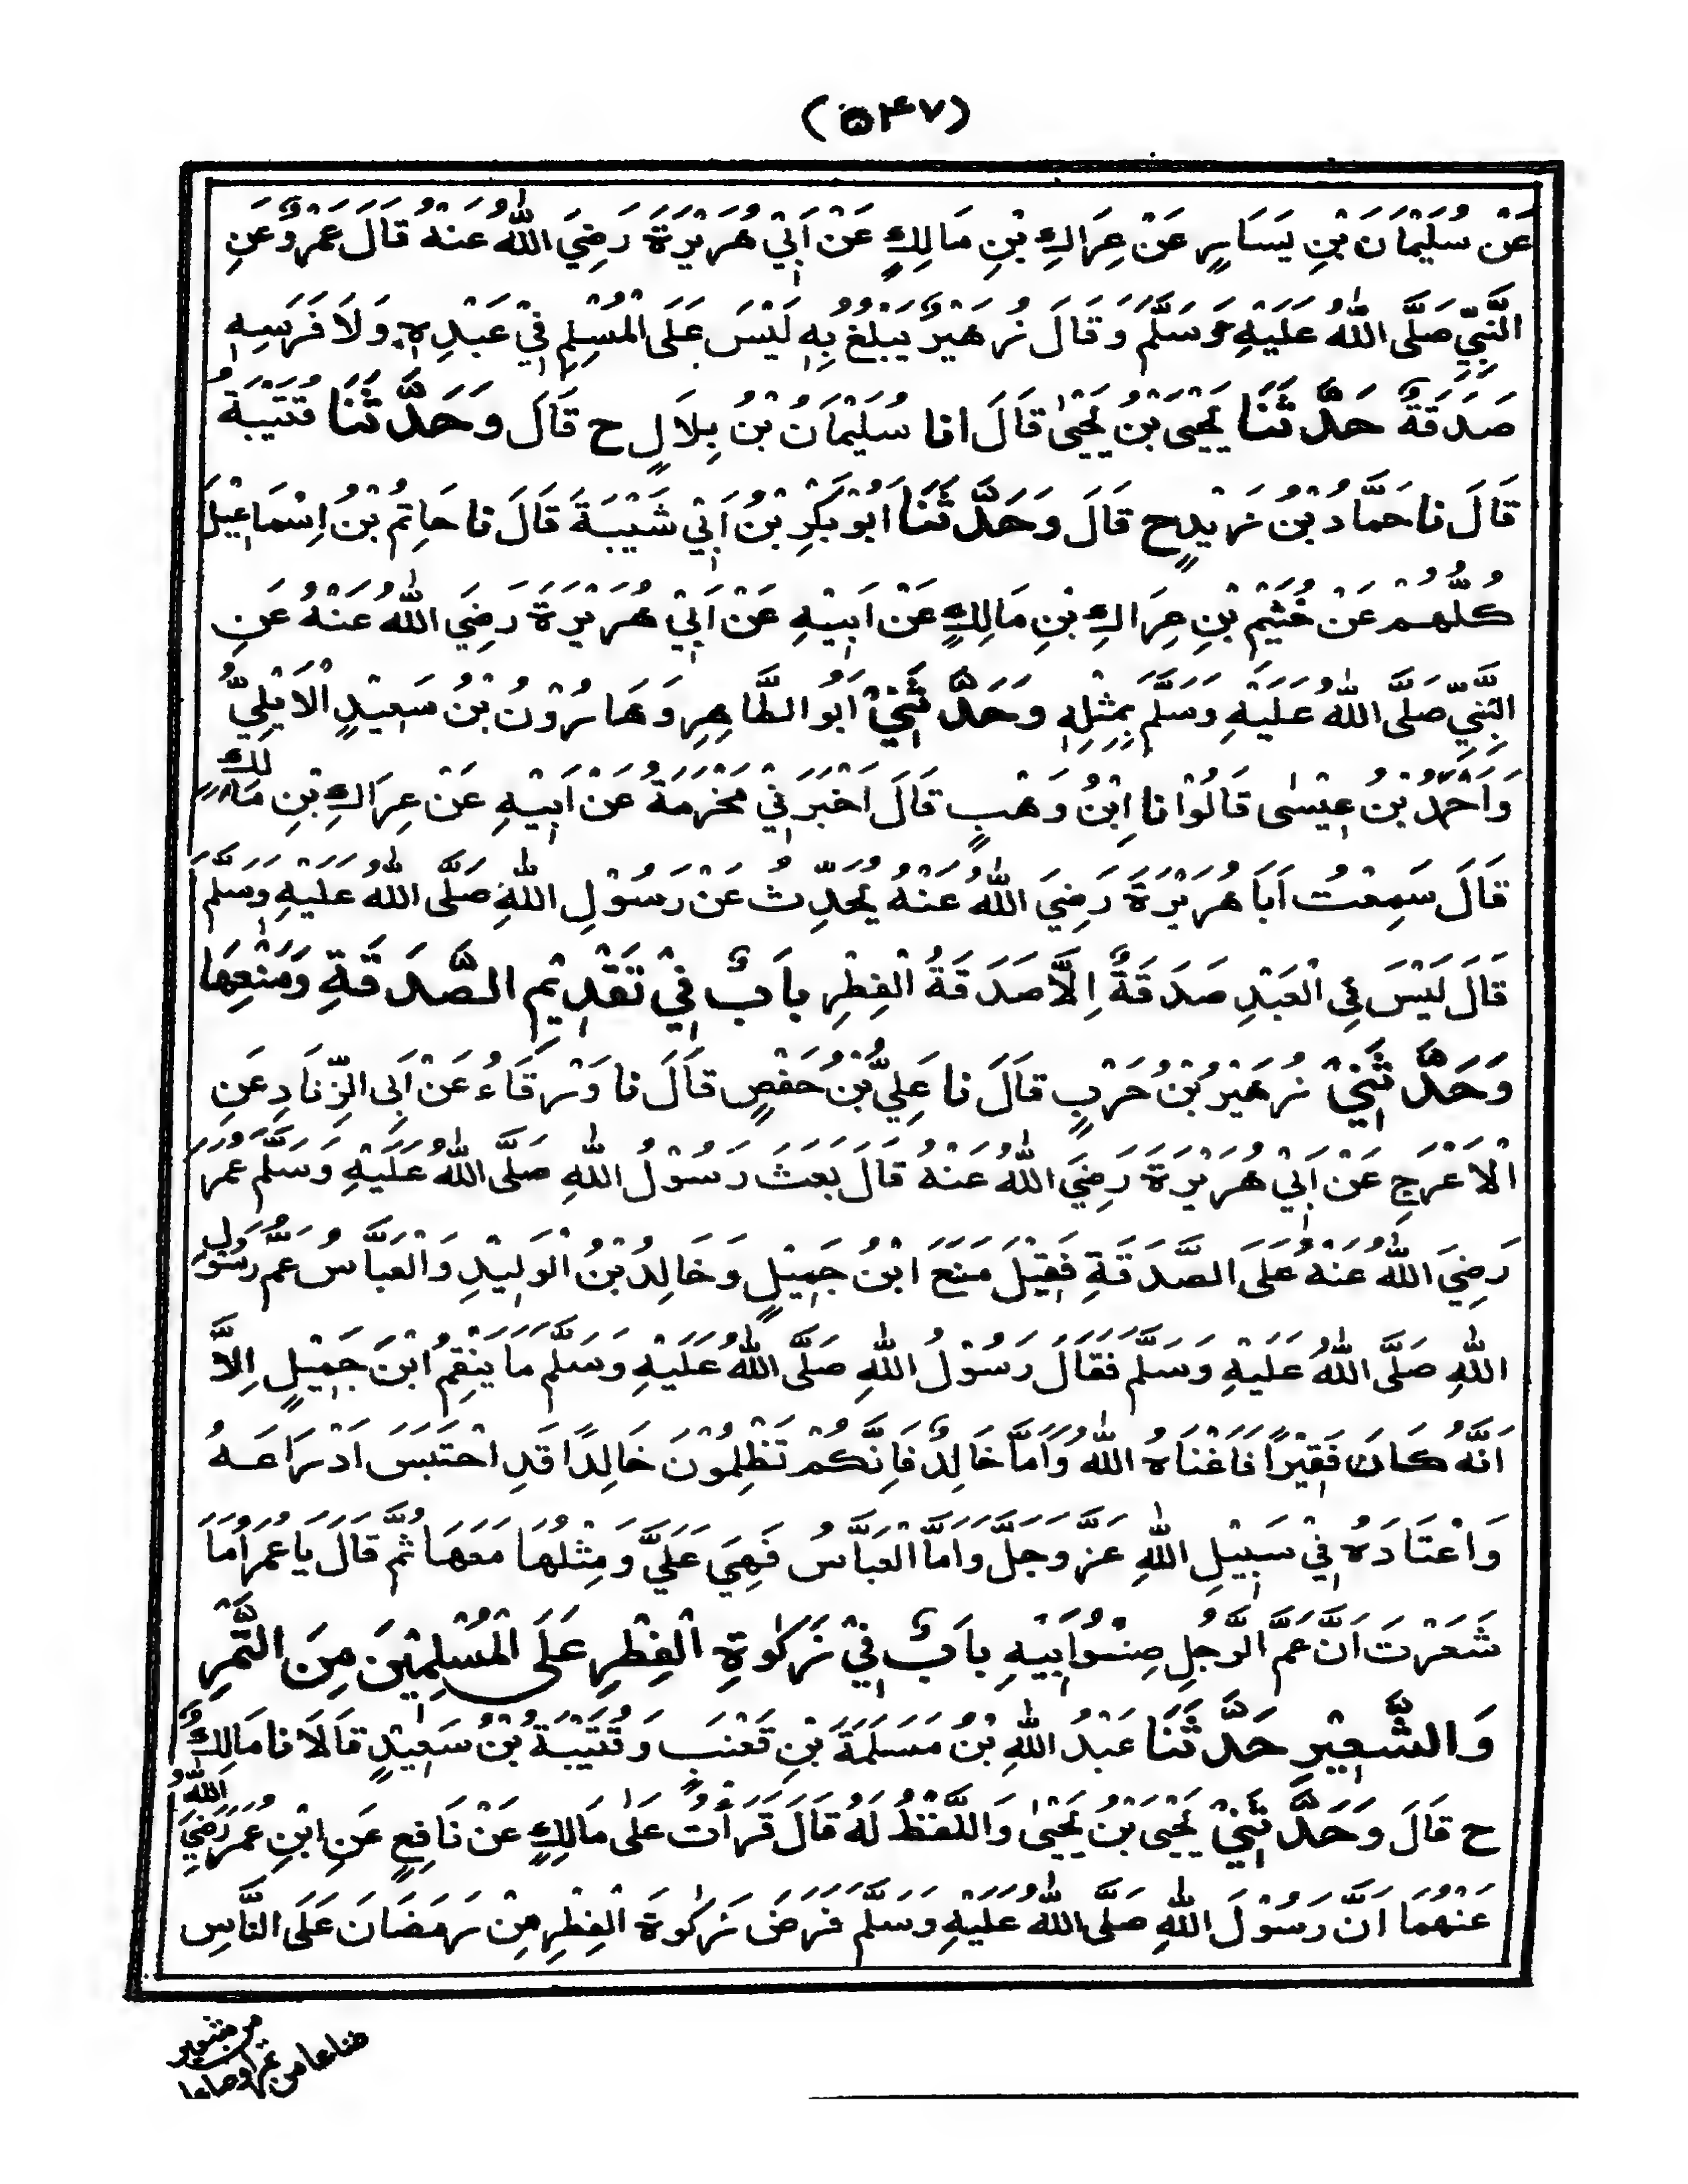 (۵۴۷)
عَنْ سُلَيْمَانَ بْنِ يَسَارٍ عَنْ عِرَاكِ بْنِ مَالِكٍ عَنْ أَبِيْ هُرَيْرَةَ رَضِيَ اللّٰهُ عَنْهُ قَالَ عَمْرٌو عَنِ
النَّبِيِّ صَلَّى اللّٰهُ عَلَيْهِ وَسَلَّمَ وَقَالَ زُهَيْرٌ يَبْلُغُ بِهٖ لَيْسَ عَلَى الْمُسْلِمِ فِيْ عَبْدِهٖ وَلَا فَرَسِهٖ
صَدَقَةٌ حَدَّثَنَا يَحْيَى بْنُ يَحْيٰى قَالَ انا سُلَيْمَانُ بْنُ بِلَالٍ ح قَالَ وَحَدَّثَنَا قُتَيْبَةُ
قَالَ نا حَمَّادُ بْنُ زَيْدٍ ح قَالَ وَحَدَّثَنَا اَبُوْ بَكْرِ بْنُ اَبِيْ شَيْبَةَ قَالَ نا حَاتِمُ بْنُ اِسْمَاعِيْلَ
كُلُّهُمْ عَنْ خُثَيْمِ بْنِ عِرَاكِ بْنِ مَالِكٍ عَنْ اَبِيْهِ عَنْ اَبِيْ هُرَيْرَةَ رَضِيَ اللّٰهُ عَنْهُ عَنِ
النَّبِيِّ صَلَّى اللّٰهُ عَلَيْهِ وَسَلَّمَ بِمِثْلِهٖ وَحَدَّثَنِيْ اَبُو الطَّاهِرِ وَهَارُوْنُ بْنُ سَعِيْدٍ الْاَيْلِيُّ
وَاَحْمَدُ بْنُ عِيْسٰى قَالُوْا نا اِبْنُ وَهْبٍ قَالَ اَخْبَرَنِيْ مَخْرَمَةُ عَنْ اَبِيْهِ عَنْ عِرَاكِ بْنِ مَالِكٍ
قَالَ سَمِعْتُ اَبَا هُرَيْرَةَ رَضِيَ اللّٰهُ عَنْهُ يُحَدِّثُ عَنْ رَسُوْلِ اللّٰهِ صَلَّى اللّٰهُ عَلَيْهِ وَسَلَّمَ
قَالَ لَيْسَ فِى الْعَبْدِ صَدَقَةٌ اِلَّا صَدَقَةُ الْفِطْرِ بَابٌ فِيْ تَقْدِيْمِ الصَّدَقَةِ وَمَنْعِهَا
وَحَدَّثَنِيْ زُهَيْرُ بْنُ حَرْبٍ قَالَ نا عَلِيُّ بْنُ حَفْصٍ قَالَ نا وَرْقَاءُ عَنْ اَبِى الزِّنَادِ عَنِ
الْاَعْرَجِ عَنْ اَبِيْ هُرَيْرَةَ رَضِيَ اللّٰهُ عَنْهُ قَالَ بَعَثَ رَسُوْلُ اللّٰهِ صَلَّى اللّٰهُ عَلَيْهِ وَسَلَّمَ عُمَرَ
رَضِيَ اللّٰهُ عَنْهُ عَلَى الصَّدَقَةِ فَقِيْلَ مَنَعَ ابْنُ جَمِيْلٍ وَخَالِدُ بْنُ الْوَلِيْدِ وَالْعَبَّاسُ عَمُّ رَسُوْلِ
اللّٰهِ صَلَّى اللّٰهُ عَلَيْهِ وَسَلَّمَ فَقَالَ رَسُوْلُ اللّٰهِ صَلَّى اللّٰهُ عَلَيْهِ وَسَلَّمَ مَا يَنْقِمُ ابْنُ جَمِيْلٍ اِلَّا
اَنَّهُ كَانَ فَقِيْرًا فَاَغْنَاهُ اللّٰهُ وَاَمَّا خَالِدٌ فَاِنَّكُمْ تَظْلِمُوْنَ خَالِدًا قَدِ احْتَبَسَ اَدْرَاعَهُ
وَاَعْتَادَهُ فِيْ سَبِيْلِ اللّٰهِ عَزَّ وَجَلَّ وَاَمَّا الْعَبَّاسُ فَهِيَ عَلَيَّ وَمِثْلُهَا مَعَهَا ثُمَّ قَالَ يَا عُمَرُ اَمَا
شَعَرْتَ اَنَّ عَمَّ الرَّجُلِ صِنْوُ اَبِيْهِ بَابٌ فِيْ زَكٰوةِ الْفِطْرِ عَلَى الْمُسْلِمِيْنَ مِنَ التَّمْرِ
وَالشَّعِيْرِ حَدَّثَنَا عَبْدُ اللّٰهِ بْنُ مَسْلَمَةَ بْنِ قَعْنَبٍ وَقُتَيْبَةُ بْنُ سَعِيْدٍ قَالَا نا مَالِكٌ
ح قَالَ وَحَدَّثَنِيْ يَحْيَى بْنُ يَحْيٰى وَاللَّفْظُ لَهُ قَالَ قَرَأْتُ عَلٰى مَالِكٍ عَنْ نَافِعٍ عَنِ ابْنِ عُمَرَ رَضِيَ اللّٰهُ
عَنْهُمَا اَنَّ رَسُوْلَ اللّٰهِ صَلَّى اللّٰهُ عَلَيْهِ وَسَلَّمَ فَرَضَ زَكٰوةَ الْفِطْرِ مِنْ رَمَضَانَ عَلَى النَّاسِ